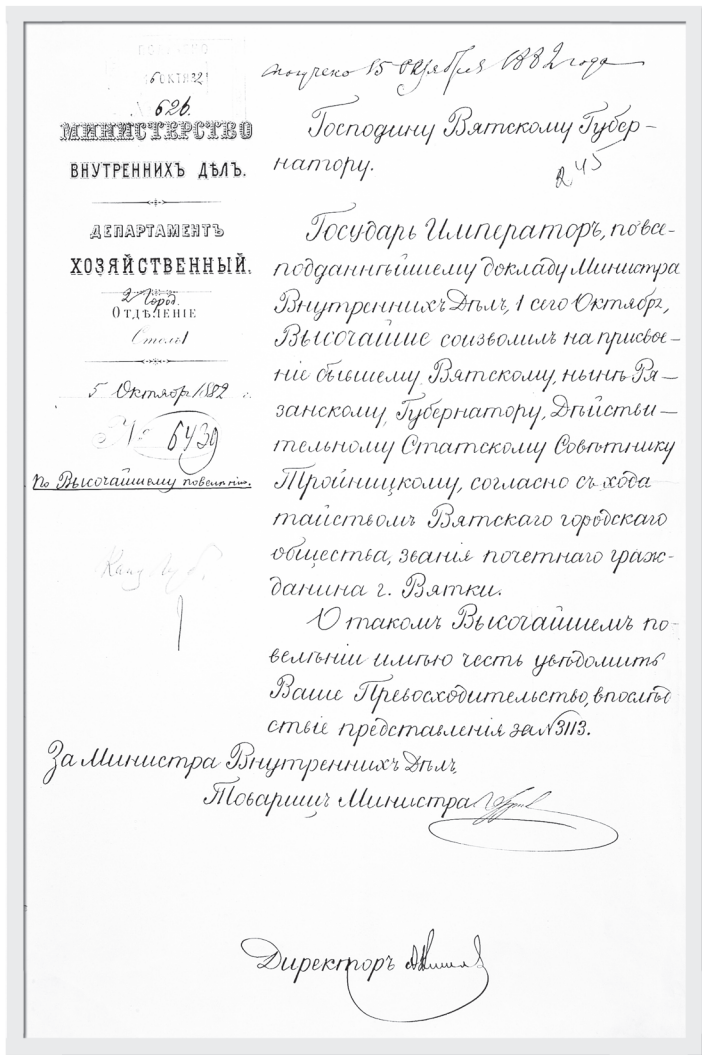 получено 15 Октября 1882 года
ОКТ 82
626.
МИНИСТЕРСТВО
ВНУТРЕННИХЪ ДѢЛЪ.
ДЕПАРТАМЕНТЪ
ХОЗЯЙСТВЕННЫЙ.
2 Город.
ОТДѢЛЕНІЕ
Столъ 1
5 Октября 1882
№ 6439
По Высочайшему повелѣнію.
Господину Вятскому Губер-
натору.
245
Государь Императоръ, по все-
подданнѣйшему докладу Министра
Внутреннихъ Дѣлъ, 1 сего Октября,
Высочайше соизволилъ на присвое-
ніе бывшему Вятскому, нынѣ Ря-
занскому, Губернатору, Дѣйстви-
тельному Статскому Совѣтнику
Тройницкому, согласно съ хода
тайствомъ Вятскаго городскаго
общества, званія почетнаго граж-
данина г. Вятки.
О такомъ Высочайшемъ по-
велѣніи имѣю честь увѣдомить
Ваше Превосходительство, впослѣд
ствіе представленія за № 3113.
За Министра Внутреннихъ Дѣлъ,
Товарищъ Министра
Директоръ